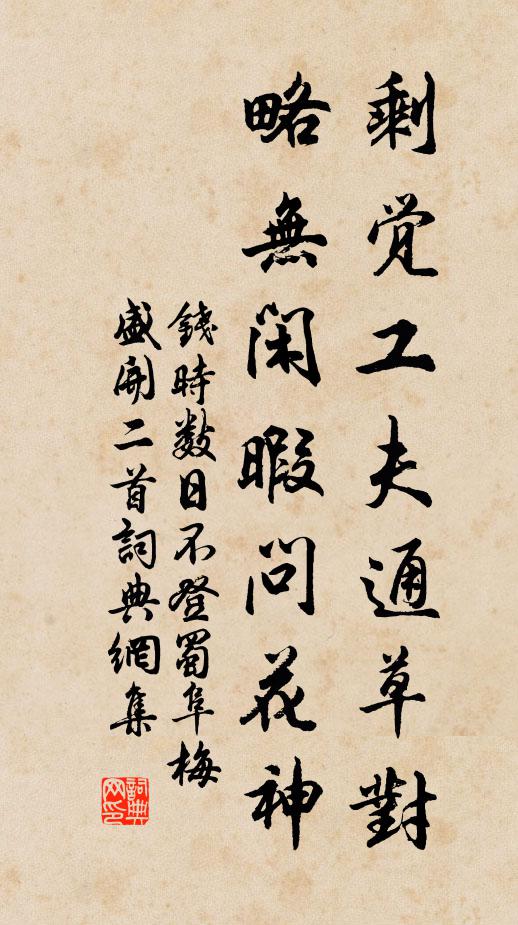 剩觉工夫通草對
略無閑暇問花神
錢時数日不登蜀阜梅
盛開二首詞典網集
詞典
网印